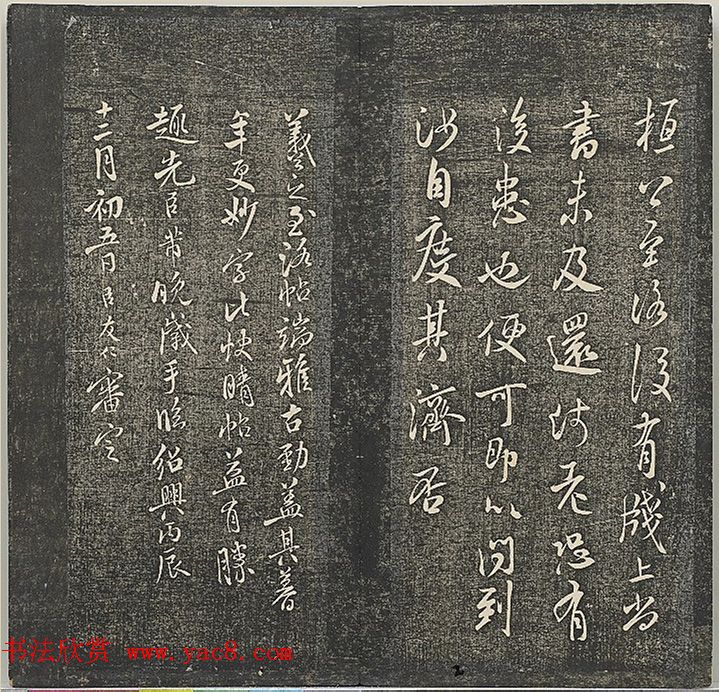 桓公至洛没有牋上当
書未及還汝老恐有
後患也便可即以问到
汝自度其濟否
羲之至洛帖端雅古勁蓋其暮
年更妙字比快晴帖益有勝
趣先臣芾晚歲手臨紹興丙辰
十二月初五日臣友仁審定
书法欣赏 www.yac8.com